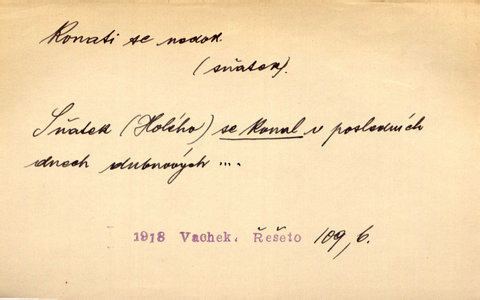 Konati se nedok.
(sňatek).
Sňatek (Holého) se konal v posledních
dnech dubnových ...
1918 Vachek. Řešeto 109, 6.